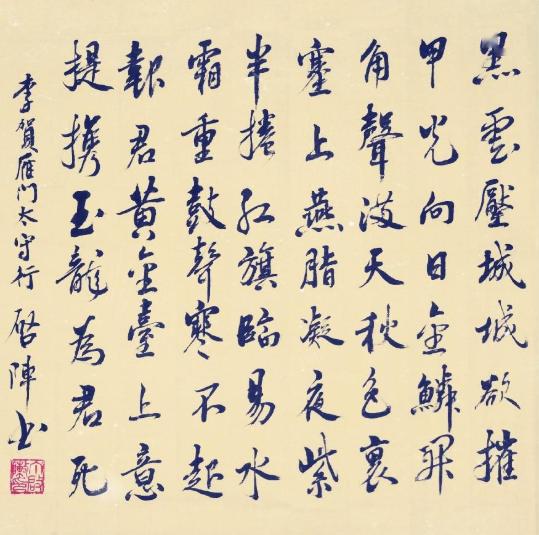 黑雲壓城城欲摧
甲光向日金鱗開
角聲滿天秋色裏
塞上燕脂凝夜紫
半捲红旗臨易水
霜重鼓聲寒不起
報君黄金臺上意
提携玉龍為君死
李賀雁门太守行 啓陣书